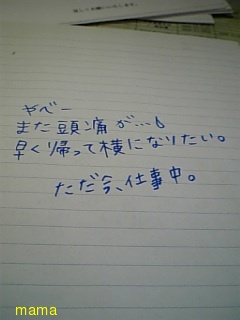 やべー
また頭痛が…💧
早く帰って横になりたい。
ただ今、仕事中。
mama